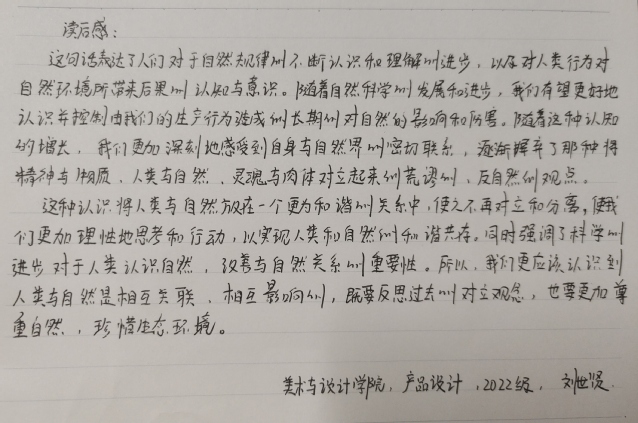 读后感：
这句话表达了人们对于自然规律的不断认识和理解的进步，以及对人类行为对
自然环境所带来后果的认知与意识。随着自然科学的发展和进步，我们有望更好地
认识并控制由我们的生产行为造成的长期的对自然的影响和伤害。随着这种认知
的增长，我们更加深刻地感受到自身与自然界的密切联系，逐渐摒弃了那种将
精神与物质、人类与自然、灵魂与肉体对立起来的荒谬的、反自然的观点。
这种认识将人类与自然放在一个更为和谐的关系中，使之不再对立和分离，使我
们更加理性地思考和行动，以实现人类和自然的和谐共存。同时强调了科学的
进步对于人类认识自然，改善与自然关系的重要性。所以，我们更应该认识到
人类与自然是相互关联、相互影响的，既要反思过去的对立观念，也要更加尊
重自然，珍惜生态环境。
美术与设计学院，产品设计，2022级，刘世贤